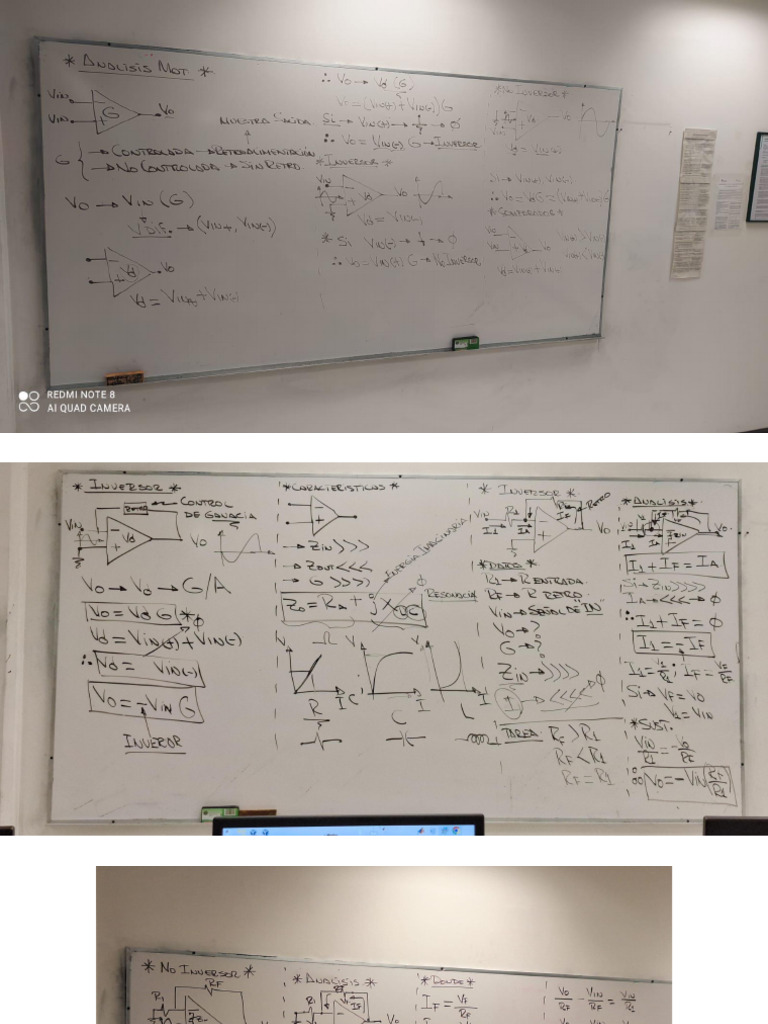 * ANALISIS MAT. *
VIN
VIN
G
VO
G { → CONTROLADA → RETROALIMENTACIÓN
→ NO CONTROLADA → SIN RETRO.
MUESTRA SALIDA
VO → VIN (G)
VDIF. → (VIN+, VIN(-))
Vd
VO
Vd = VIN(+) + VIN(-)
∴ VO → Vd (G)
VO = (VIN(+) + VIN(-)) G
Si → VIN(+) → → Ø
∴ VO = VIN(-) G → INVERSOR
* INVERSOR *
VIN
Vd
VO
Vd = VIN(-)
* Si VIN(-) → → Ø
∴ VO = VIN(+) G → NO INVERSOR
VO
Si → VIN(+), VIN(-)
∴ VO = Vd G = (VIN(+) + VIN(-)) G
REDMI NOTE 8
AI QUAD CAMERA
* INVERSOR *
CONTROL
DE GANACIA
VIN
Vd
VO
VO → Vd → G/A
VO = Vd G * Ø
Vd = VIN(+) + VIN(-)
∴ Vd = VIN(-)
VO = -VIN G
INVERSOR
* CARACTERISTICAS *
→ ZIN >>>
→ ZOUT <<<
→ G >>>
ENERGIA IMAGINARIA
Ø
ZO = RA + j X LC
RESONACIA
V
Ω
I
R
V
C
I
C
V
I
L
* INVERSOR *
RETRO
VIN
R1
I1
IF
VO
* DATOS *
R1 → R ENTRADA.
RF → R RETRO.
VIN → SEÑAL DE "IN"
VO → ?
G → ?
ZIN → >>>>
I → <<<< Ø
TAREA: RF > R1
RF < R1
RF = R1
* ANALISIS *
VO
I1 + IF = IA
Si → ZIN >>>>
IA → <<<< → Ø
∴ I1 + IF = Ø
I1 = -IF
I1 = V1/R1 ; IF = VF/RF
Si → VF = VO
V1 = VIN
* SUST.
VIN/R1 = -VO/RF
∴ VO = -VIN (RF/R1)
* NO INVERSOR *
RF
R1
* ANALISIS *
R1
IF
VO
* DONDE *
IF = VF/RF
VO/RF - VIN/RF = VIN/R1